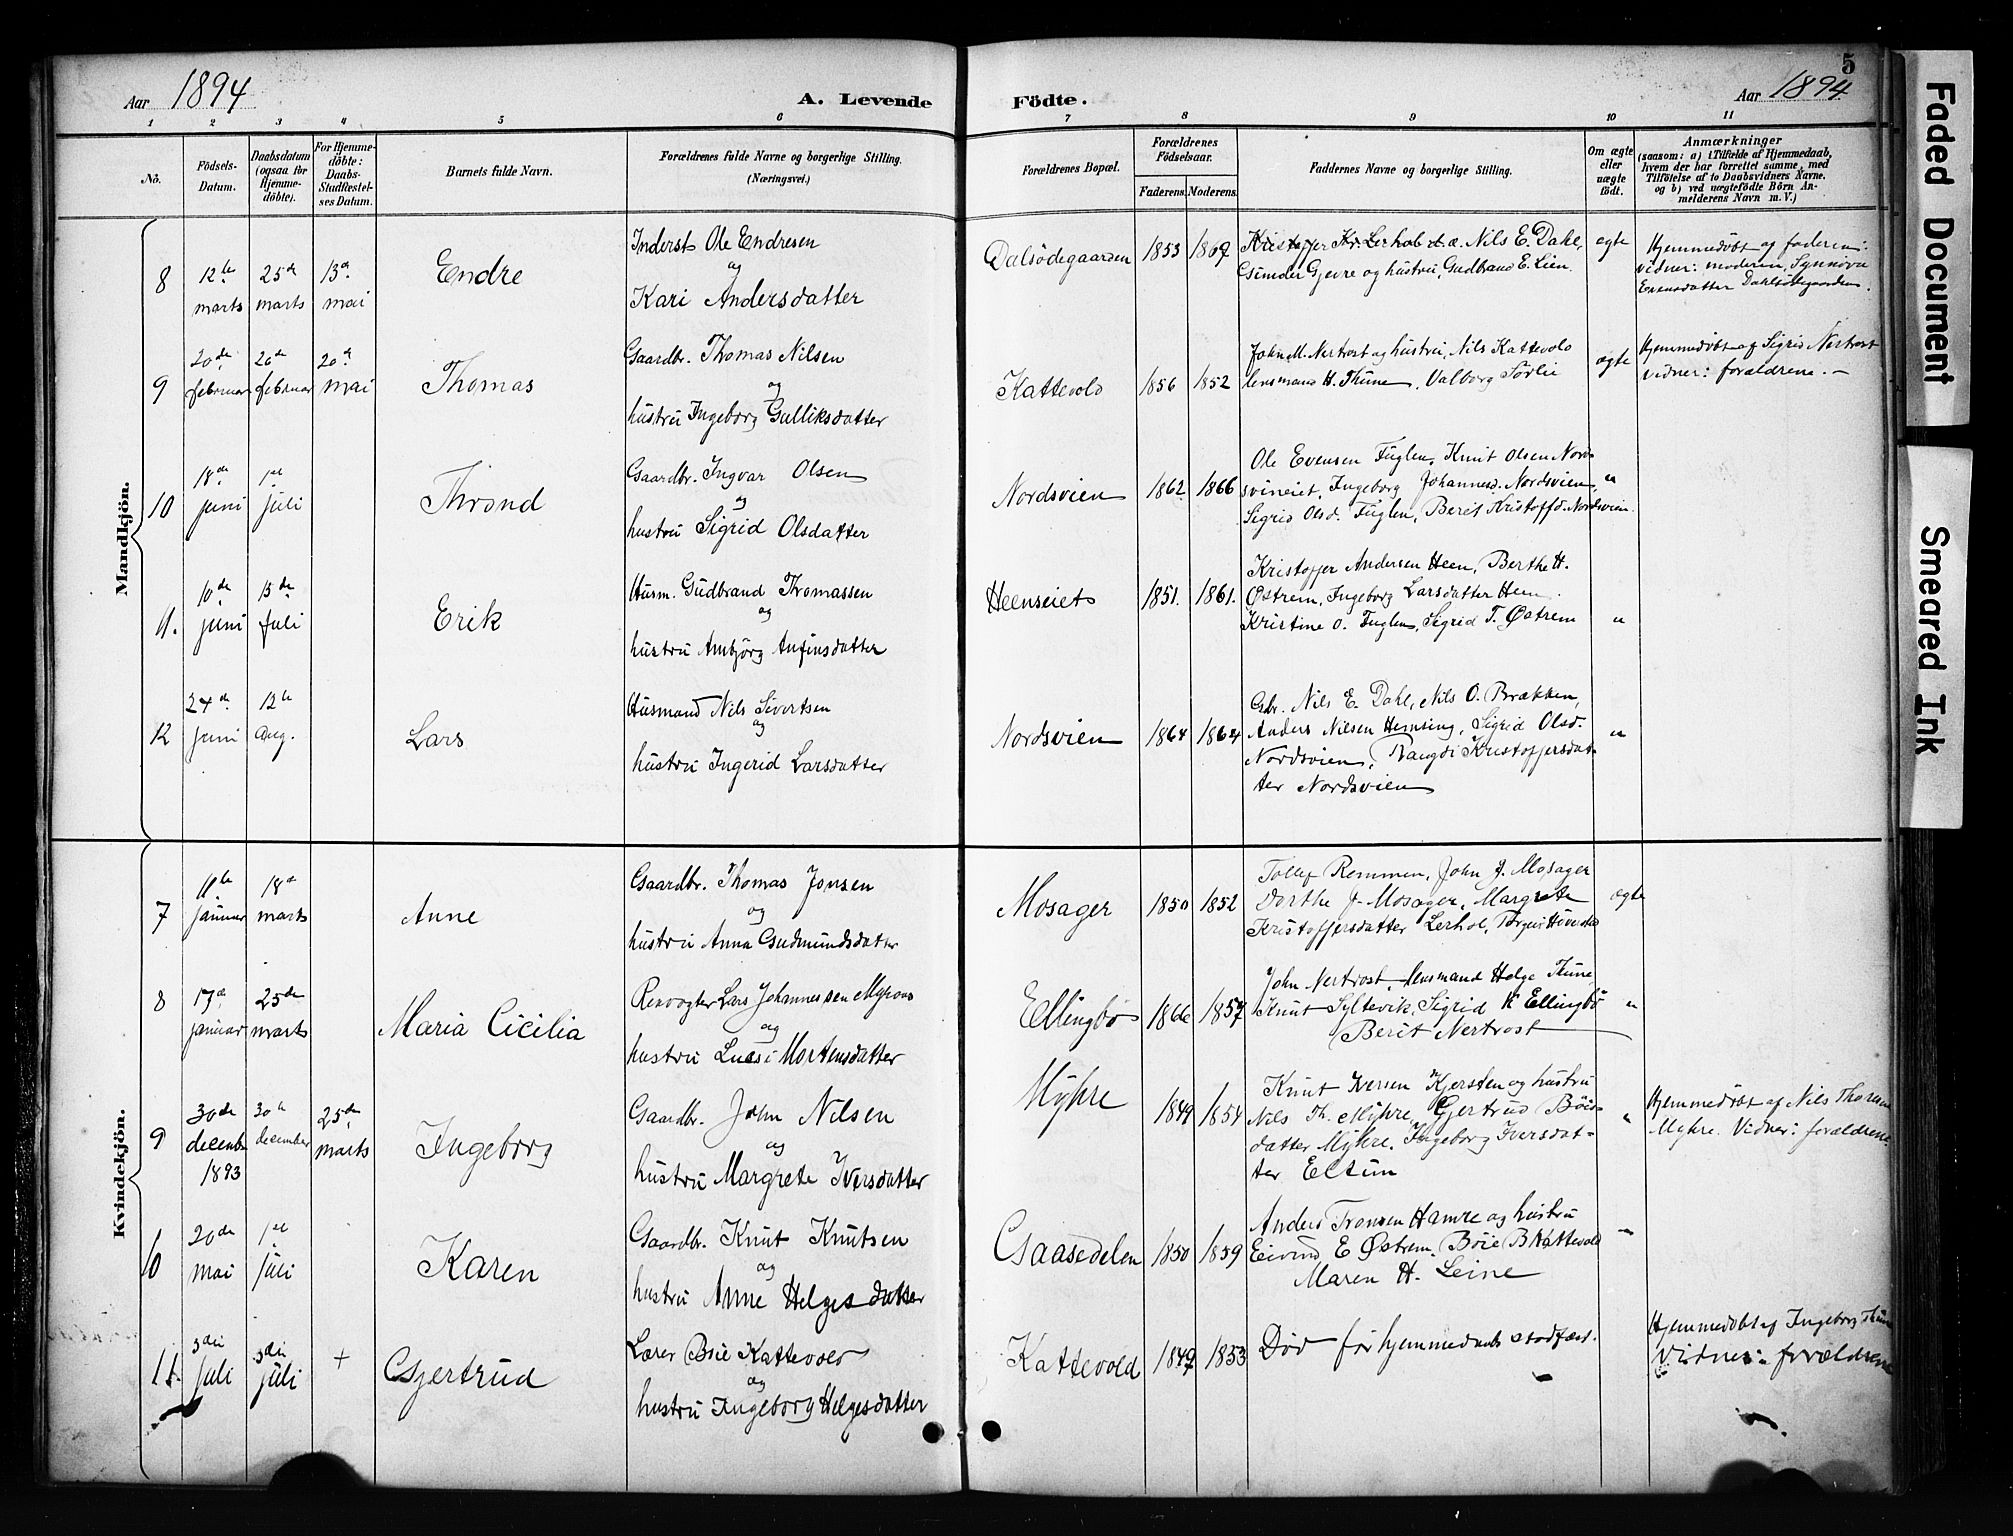 5
Aar 1894
A. Levende Födte.
Aar 1894
1 2 3 4 5 6 7 8 9 10 11
No.
Födsels-Datum.
Daabsdatum (ogsaa for Hjemme-döbte).
For Hjemme-döbte: Daabs-Stadfæstel-ses Datum.
Barnets fulde Navn.
Forældrenes fulde Navne og borgerlige Stilling. (Næringsvei.)
Forældrenes Bopæl.
Forældrenes Födselsaar.
Faderens. Moderens.
Faddernes Navne og borgerlige Stilling.
Om ægte eller uægte födt.
Anmærkninger
(saasom: a) i Tilfælde af Hjemmedaab, hvem der har forrettet samme, med Tilföielse af to Daabsvidners Navne, og b) ved uægtefödte Börn An-melderens Navn m. V.)
Mandkjön.
8 12te marts 25de marts 13de mai
Endre
Inderst Ole Endresen
og
Kari Andersdatter
Dalsödegaarden 1853 1867
Kristoffer Kr. Lerhol Nils E. Dahl,
Gjevre og hustru, Gudbrand E. Lien.
ægte
Hjemmedöbt af faderen:
vidner: moderen, Synnöva
Evensdatter Dahlsödegaarden.
9 20de februar 26de februar 20de mai
Thomas
Gaardbr. Thomas Nilsen
og
hustru Ingeborg Gulliksdatter
Kattevold 1856 1852
John M. Nertrost og hustru, Nils Kattevold
lensmand H. Thune, Valborg Sörlie
ægte
Hjemmedöbt af Sigrid Nertrost
vidner: forældrene. —
10 18de juni 1ste juli
Thrond
Gaardbr. Ingvar Olsen
og
hustru Sigrid Olsdatter
Nordsvien 1862 1866
Ole Evensen Fuglen, Knut Olsen Nord-
svineiet, Ingeborg Johannesd. Nordsvien, "
Sigrid Olsd. Fuglen, Berit Kristoffd. Nordsvien
11. 10de juni 15de juli
Erik
Husm. Gudbrand Thomassen
og
hustru Ambjörg Anfinsdatter
Heenseiet 1851. 1861.
Kristoffer Andersen Heen, Berthe H.
Østrem, Ingeborg Larsdatter Heen.
Kristine O. Fuglen, Sigrid T. Østrem "
12 24de juni 12te aug.
Lars
Husmand Nils Sivertsen
og
hustru Ingerid Larsdatter
Nordsvien 1864 1864
Gbr. Nils E. Dahl, Nils O. Brækken,
Anders Nilsen Hemsing, Sigrid Olsd. "
Nordsvien, Rangdi Kristoffersdat-
ter Nordsvien
Kvindekjön.
7 11te januar 18de marts
Anne
Gaardbr. Thomas Jonsen
og
hustru Anna Gudmundsdatter
Mosager 1850 1852
Tollef Remmen, John J. Mosager
Dorthe J. Mosager, Margrete ægte
Kristoffersdatter Lerhol,
8 17de januar 25de marts
Maria Cicilia
Lars Johannessen
og
hustru Lucsi Mortensdatter
Ellingbö 1866 1857
John Nertrost, lensmand Helge Thune
Knut Syltevik, Sigrid K Ellingbö "
Berit Nertrost
9 30de decemb. 1893 30te december 25de marts
Ingeborg
Gaardbr. John Nilsen
og
hustru Margrete Iversdatter
Myhre 1849 1854
Knut Iversen Kjersten og hustru
Nils Th. Myhre, Gjertrud Böis- "
datter Myhre, Ingeborg Iversdat-
ter Eltun
Hjemmedöbt af Nils Thorsen
Myhre. Vidner: forældrene.
10 20de mai 1ste juli
Karen
Gaardbr. Knut Knutsen
og
hustru Anne Helgesdatter
Gaasedelen 1850 1859
Anders Tronsen Hamre og hustru "
Eivind E Østrem, Böie B Kattevold
Maren H. Leine
11. 3die juli 3die juli +
Gjertrud
Lærer Böie Kattevold
og
hustru Ingeborg Helgesdatter
Kattevold 1849 1853
Död för hjemmedaabs stadfæst.
Hjemmedöbt af Ingeborg Thune
Vidner: forældrene
Faded Document
Smeared Ink